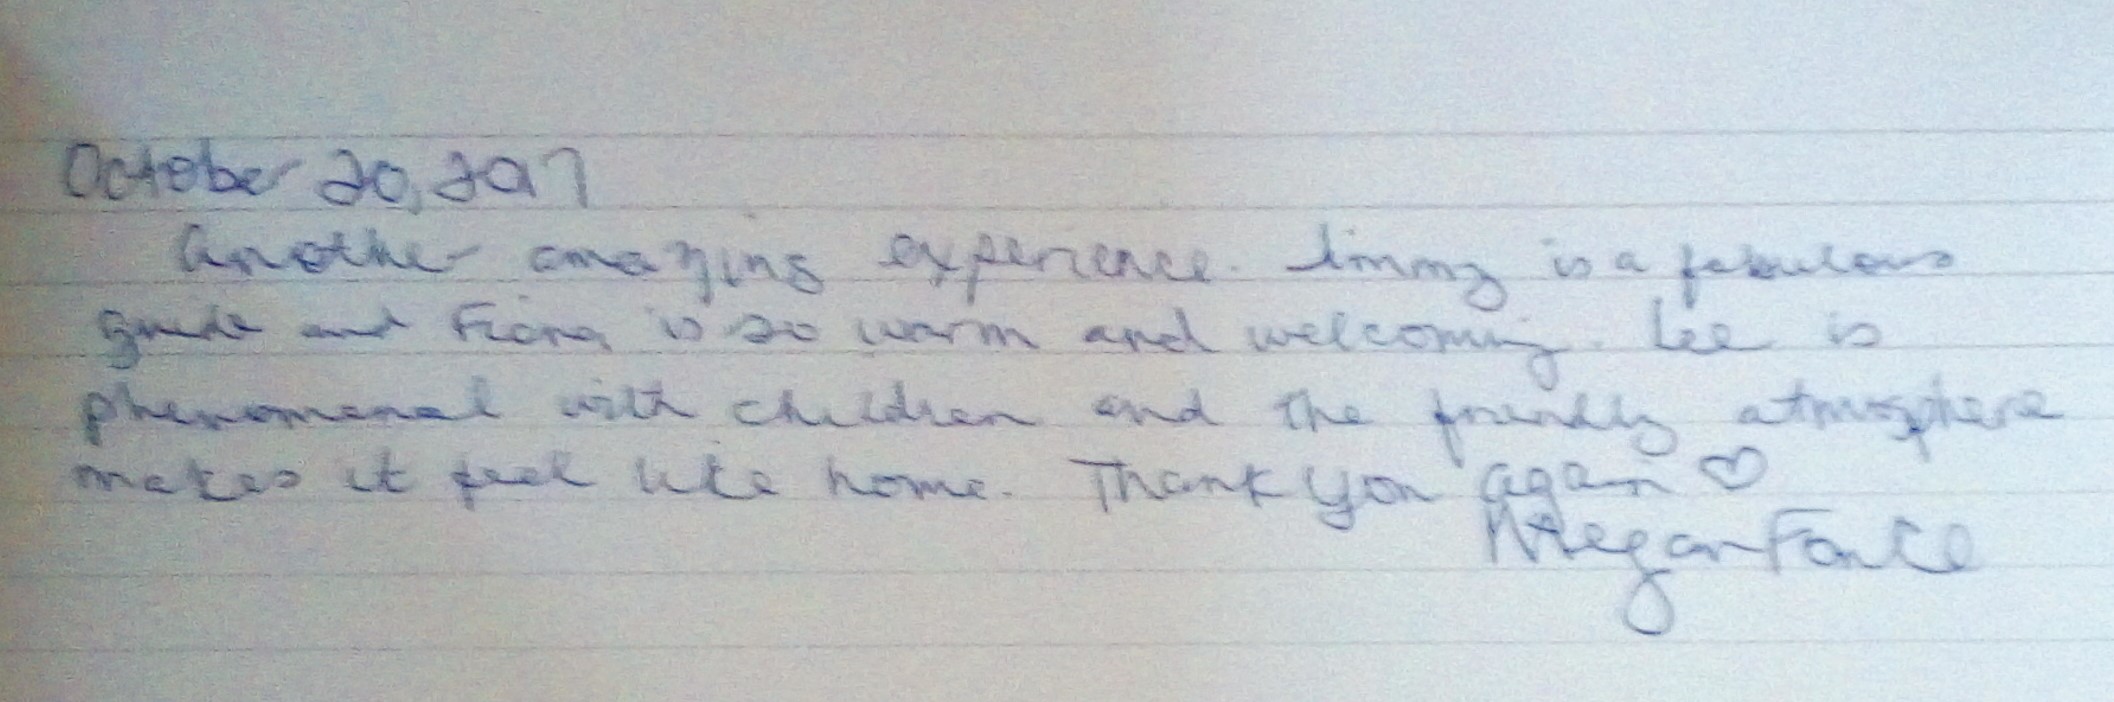 October 20, 2017
Another amazing experience. Jimmy is a fabulous
guide and Fiona is so warm and welcoming. Lee is
phenomenal with children and the friendly atmosphere
makes it feel like home. Thank you again ♡
Megan